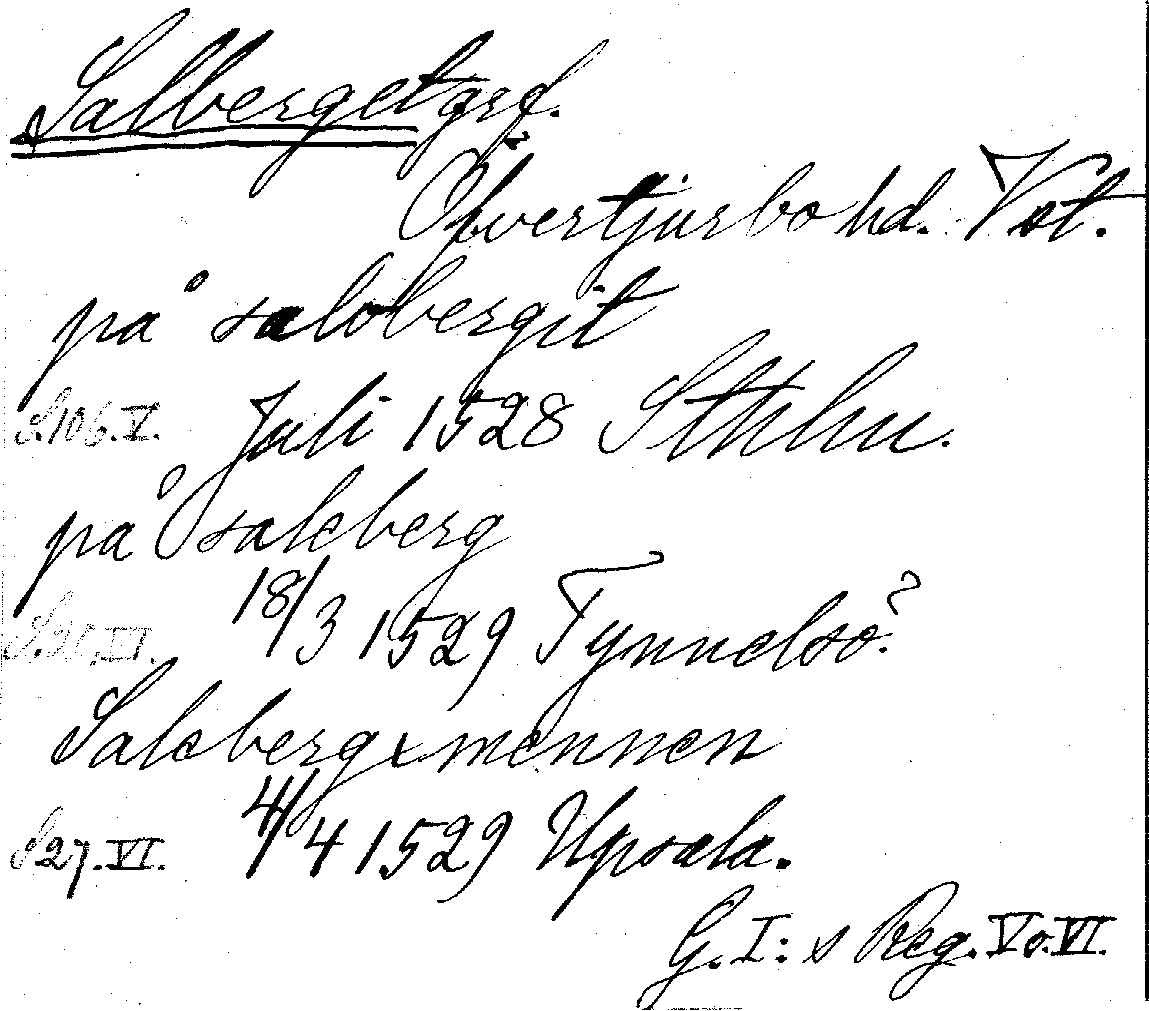 Salberget grf.
Öfvertjurbo hd. Vst.
på salobergit
S. 106. V. Juli 1528 Sthlm.
på saleberg
18/3 1529 Tynnelsö?
Salebergxmennen
S 27. VI. 4/4 1529 Upsala.
G. I: s Reg. V o. VI.